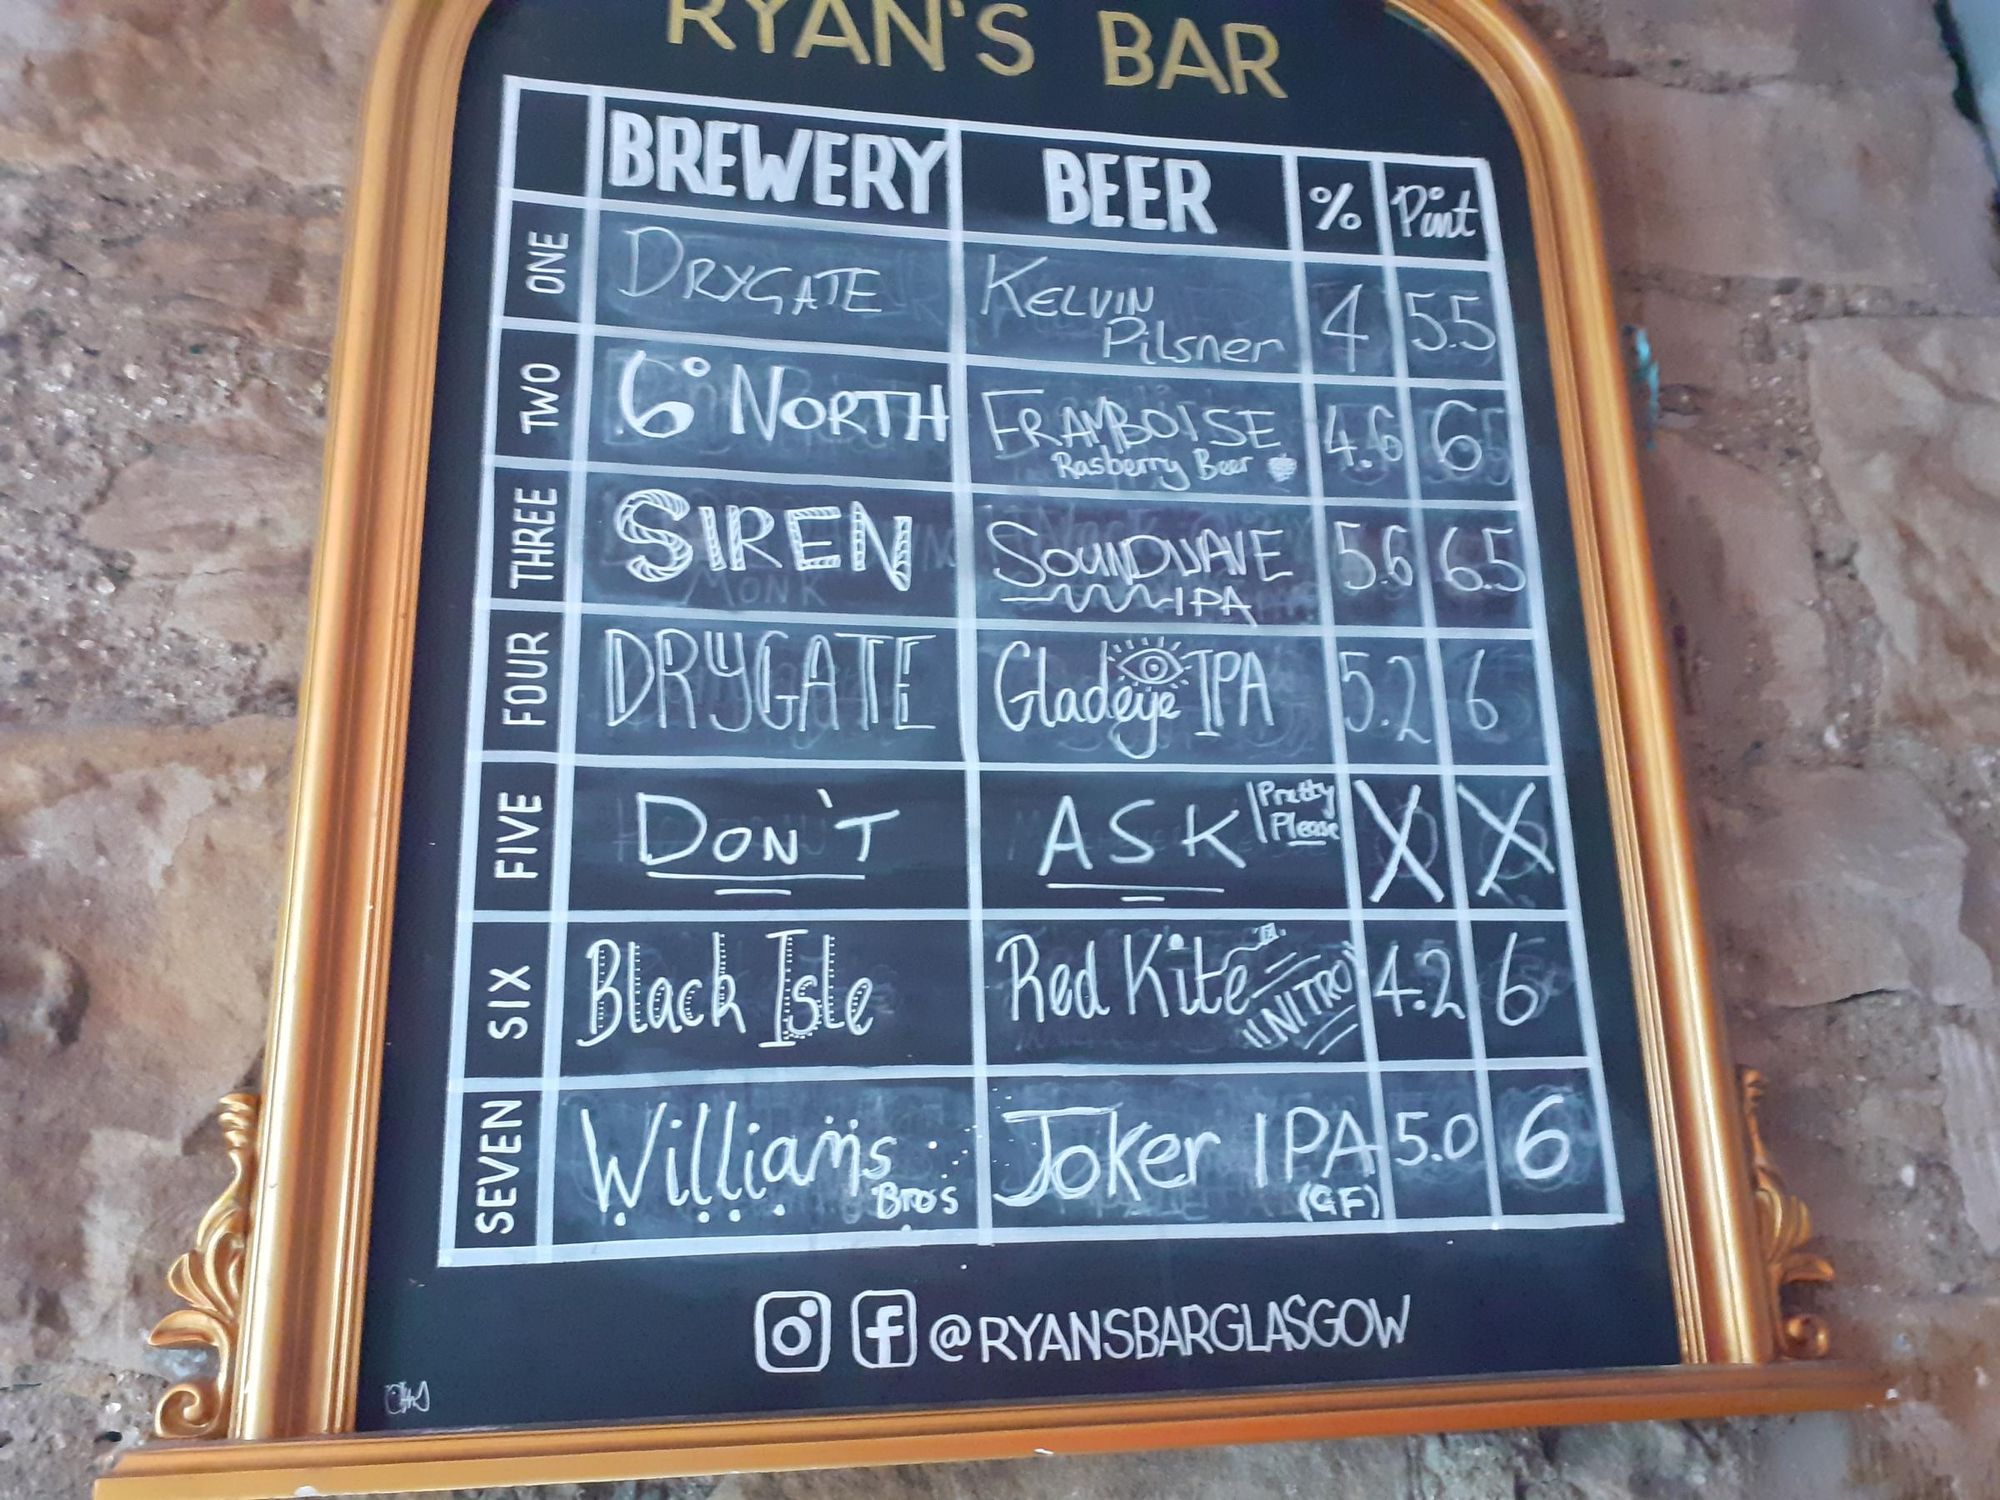 RYAN'S BAR
BREWERY BEER % Pint
ONE DRYGATE KELVIN Pilsner 4 5.5
TWO 6° NORTH FRAMBOISE Rasberry Beer 4.6 6
THREE SIREN SOUNDWAVE IPA 5.6 6.5
FOUR DRYGATE Gladeye IPA 5.2 6
FIVE DON'T ASK Pretty Please X X
SIX Black Isle Red Kite NITRO 4.2 6
SEVEN Williams Bros JOKER IPA (GF) 5.0 6
@RYANSBARGLASGOW